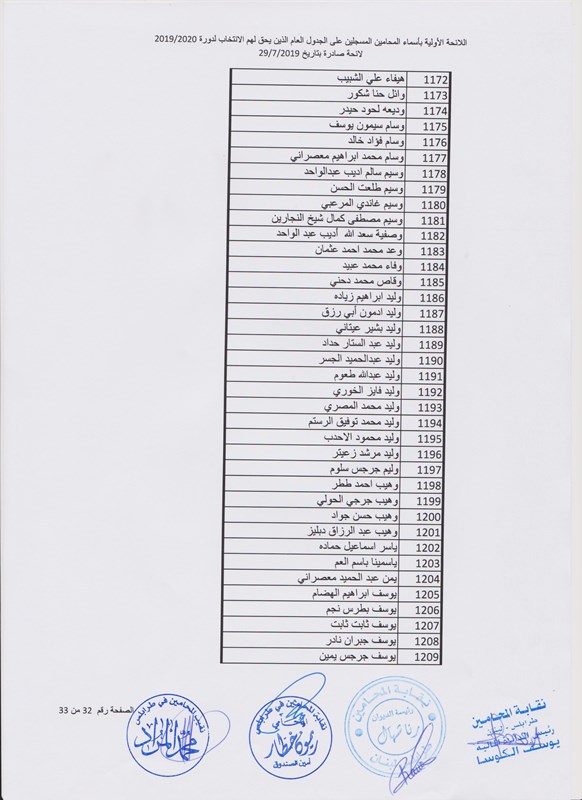 اللائحة الأولية بأسماء المحامين المسجلين على الجدول العام الذين يحق لهم الانتخاب لدورة 2019/2020
لائحة صادرة بتاريخ 29/7/2019
1172 هيفاء علي الشبيب
1173 وائل حنا شكور
1174 وديعه لحود حيدر
1175 وسام سيمون يوسف
1176 وسام فؤاد خالد
1177 وسام محمد ابراهيم معصراني
1178 وسيم سالم اديب عبدالواحد
1179 وسيم طلعت الحسن
1180 وسيم غاندي المرعبي
1181 وسيم مصطفى كمال شيخ النجارين
1182 وصفية سعد الله أديب عبد الواحد
1183 وعد محمد احمد عثمان
1184 وفاء محمد عبيد
1185 وقاص محمد دحني
1186 وليد ابراهيم زياده
1187 وليد ادمون أبي رزق
1188 وليد بشير عيتاني
1189 وليد عبد الستار حداد
1190 وليد عبدالحميد الجسر
1191 وليد عبدالله طعوم
1192 وليد فايز الخوري
1193 وليد محمد المصري
1194 وليد محمد توفيق الرستم
1195 وليد محمود الاحدب
1196 وليد مرشد زعيتر
1197 وليم جرجس سلوم
1198 وهيب احمد ططر
1199 وهيب جرجي الحولي
1200 وهيب حسن جواد
1201 وهيب عبد الرزاق دبليز
1202 ياسر اسماعيل حماده
1203 ياسمينا باسم العم
1204 يمن عبد الحميد معصراني
1205 يوسف ابراهيم الهضام
1206 يوسف بطرس نجم
1207 يوسف ثابت ثابت
1208 يوسف جبران نادر
1209 يوسف جرجس يمين
نقابة المحامين
طرابلس - لبنان
يوسف الكوسا
نقابة المحامين
رئيسة الديوان
نقابة المحامين في طرابلس
المحامي
ريمون خطار
أمين الصندوق
نقيب المحامين في طرابلس
محمد المراد
الصفحة رقم 32 من 33